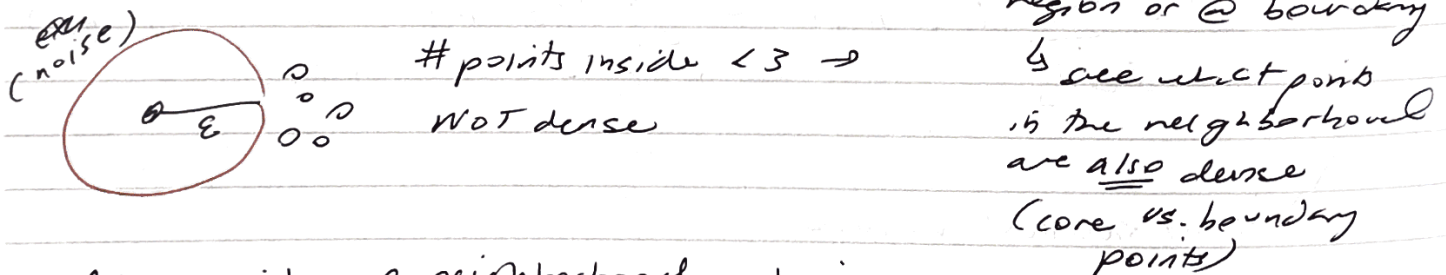 (noise)
ε
# points inside < 3 →
NOT dense
region or @ boundary
↳ see what points
in the neighborhood
are also dense
(core vs. boundary
points)
neighborhood